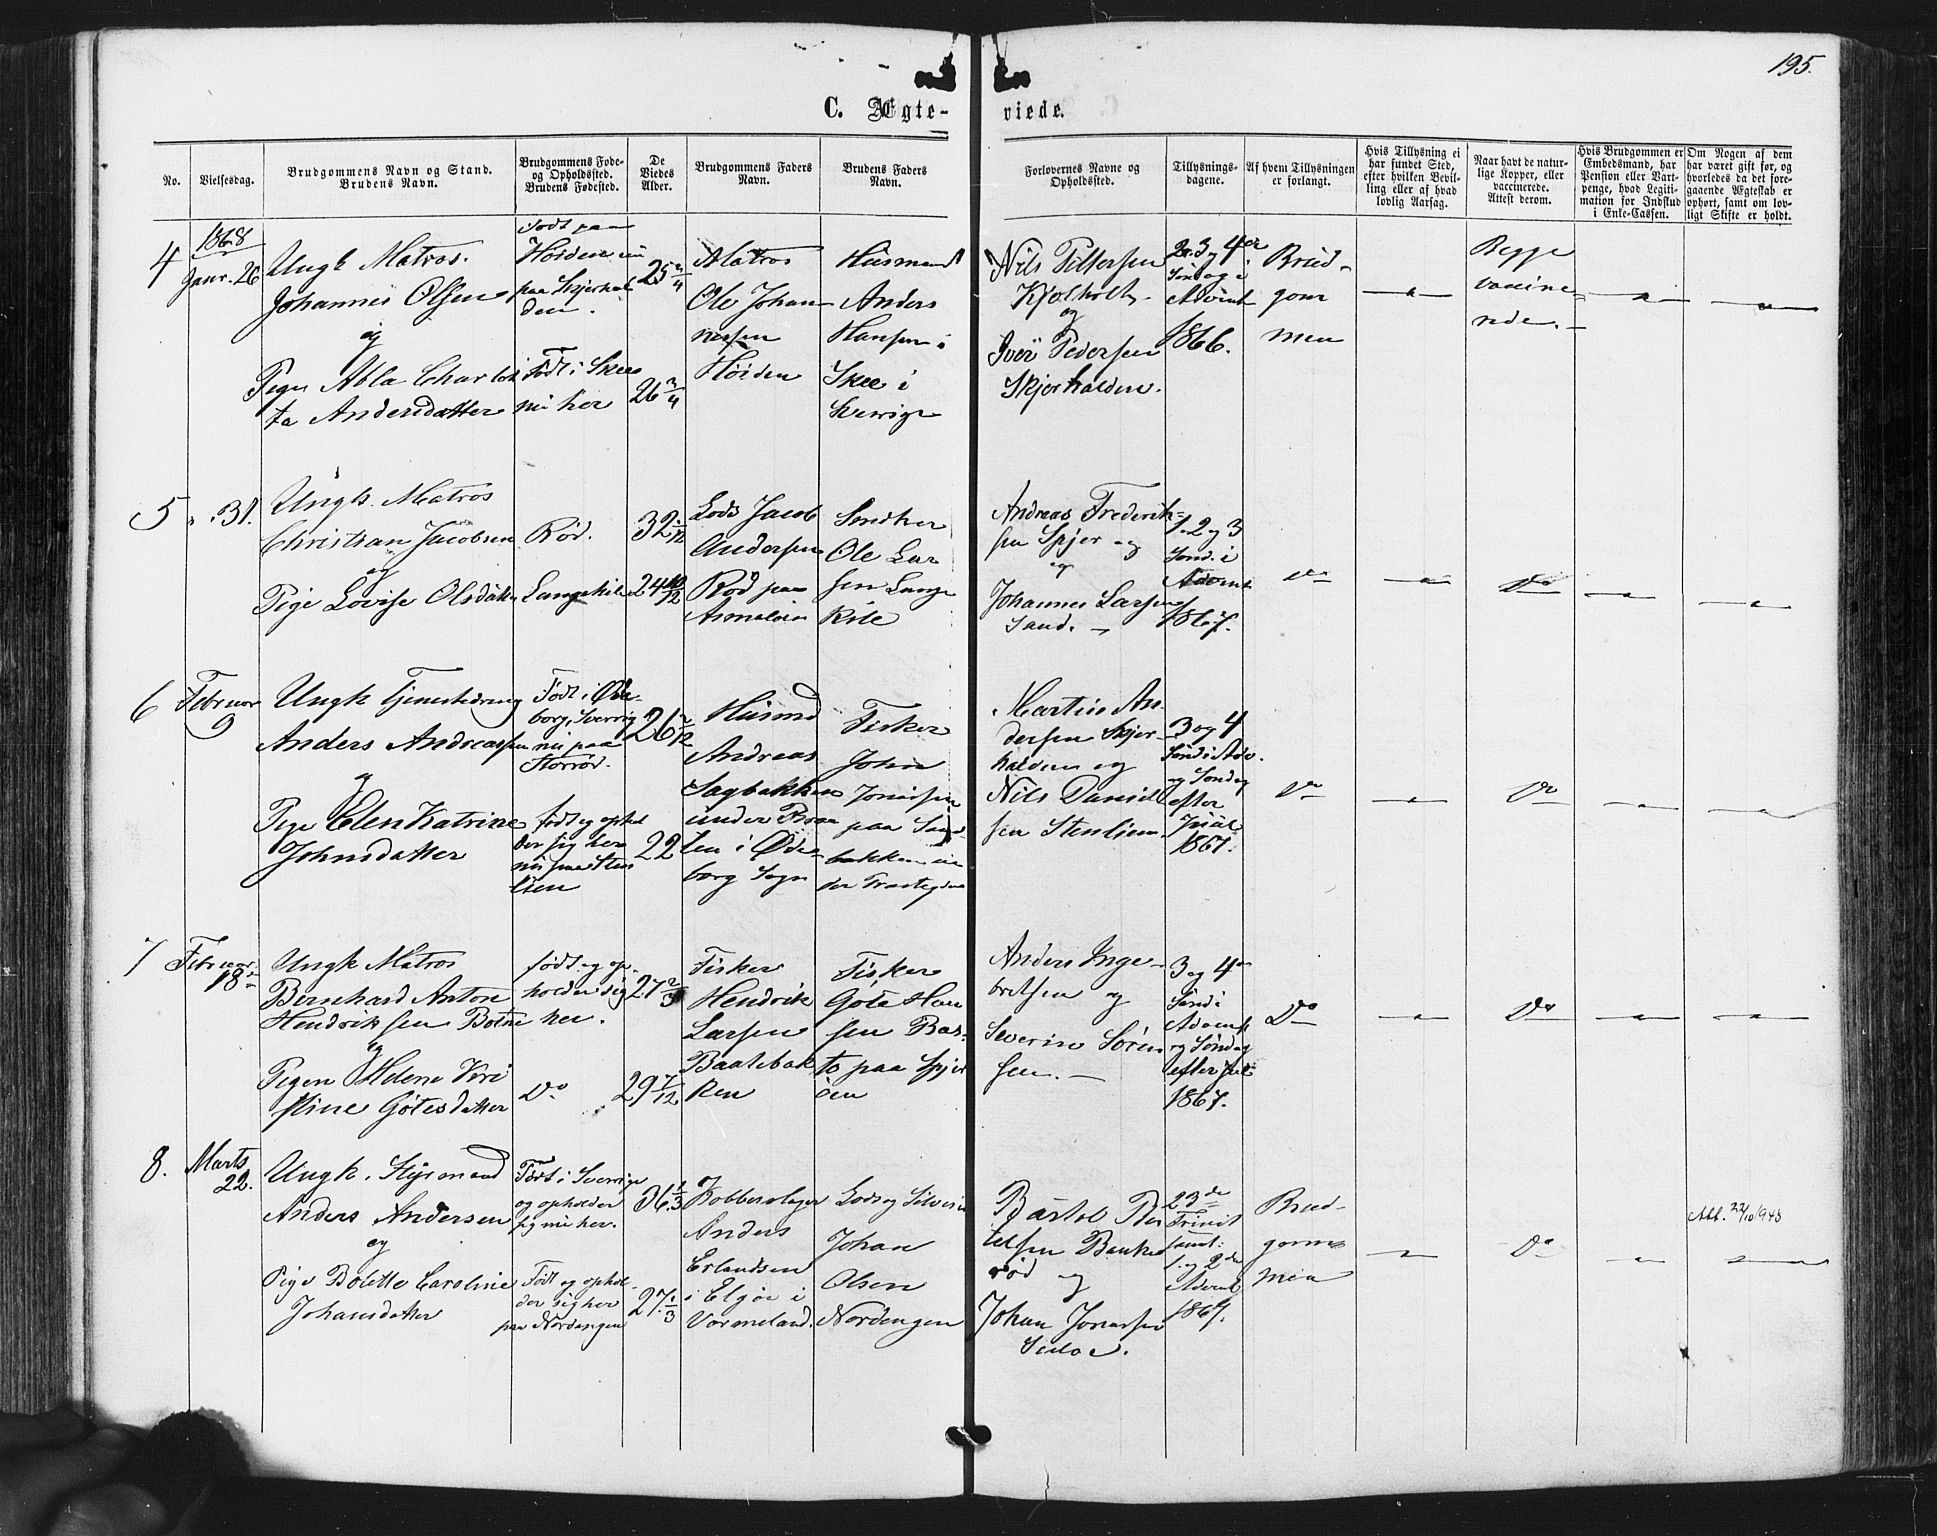 195.
C. Ægte-
viede.
No.
Vielsesdag.
Brudgommens Navn og Stand.
Brudens Navn.
Brudgommens Føde-
og Opholdssted.
Brudens Fødested.
De
Viedes
Alder.
Brudgommens Faders
Navn.
Brudens Faders
Navn.
Forlovernes Navne og
Opholdssted.
Tillysnings-
dagene.
Af hvem Tillysningen
er forlangt.
Hvis Tillysning ei
har fundet Sted,
efter hvilken Bevil-
ling eller af hvad
lovlig Aarsag.
Naar havt de natur-
lige Kopper, eller
vaccinerede.
Attest derom.
Hvis Brudgommen er
Embedsmand, har
Pension eller Vart-
penge, hvad Legiti-
mation for Indskud
i Enke-Cassen.
Om Nogen af dem
har været gift før, og
hvorledes da det fore-
gaaende Ægteskab er
ophørt, samt om lov-
ligt Skifte er holdt.
4
1868
Janr. 26
Ungk Matros.
Johannes Olsen
og
Pige Abla Charlot
ta Andersdatter
Født paa
Høiden nu
paa Skjærhal
den.
Født i Skee
nu her
25 3/4
26 3/4
Matros
Ole Johan-
nessen
Høiden
Husmand
Anders
Hansen i
Skee i
Sverige
Nils Pettersen
Kjølholt
og
Iver Pedersen
Skjærhalden.
2. 3 og 4de
Søndag i
Advent
1866.
Brud-
gom
men
Begge
vaccine-
rede.
5
" 31.
Ungk. Matros
Christian Jacobsen
og
Pige Lovise Olsdatter
Rød.
Langekile
32 1/12
24 10/12
Lods Jacob
Andersen
Rød paa
Asmaløen
Ole Lar
sen Lange
kile
Andreas Frederik-
sen Spjær og
og
Johannes Larsen
Sand.
1. 2 og 3
Sønd. i
Advent
1867.
Do
Do
6
Februar
9
Ungk Tjenestedreng
Anders Andreassen
og
Pige Elen Katrine
Johnsdatter
Født i Øde-
borg, Sverrig
nu paa
Storrød.
født og ophol
der sig her
nu paa Sten
lien
26 2/12
22
Husmd
Andreas
Sagbakken
under
len i Øde-
borg Sogn
Fisker
John
Jonassen
paa Sand
bakken un
der
Martin An-
dersen Skjær-
halden og
Nils Daniel
sen Stenlien.
3 og 4
Sønd i Adv.
og Søndag
efter
Juul
1867.
Do
Do
7
Februar
18
Ungk Matros
Bernhard Anton
Hendriksen Botne
og
Pigen Helene Kri
stine Gøtesdatter
født og op-
holder sig
her.
Do
27 2/3
29 7/12
Fisker
Hendrik
Larsen
Baatebak
ken
Fisker
Gøte Han
sen Bas-
to paa Spjær
øen
Anders Inge-
bretsen og
Severin Søren
sen.
3 og 4de
Sønd i
Advent
og Søndag
efter Juul
1867.
Do
Do
8.
Marts
22.
Ungk. Styrmand
Anders Andersen
og
Pige Bolette Caroline
Johansdatter
Født i Sverrige
og opholder
sig nu her.
Født og ophol-
der sig her
paa Nordengen
36 1/3
27 1/3
Bøbberslager
Anders
Erlandsen
i Elgøe i
Vormeland.
Johan
Olsen
Nordengen
Bærtel Ber
telsen Banke
rød og
Johan Jonassen
23de
Trinit
samt
1. og 2de
i Advent
1867.
Brud-
gom-
men
Do
Att. 22/10 1948